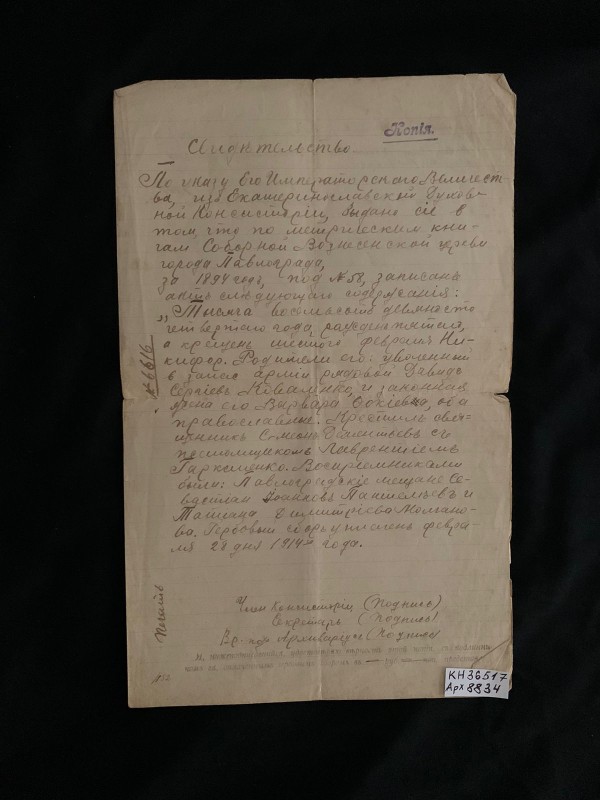 Копія.
Свидѣтельство
По указу Его Императорскаго Величест-
ва, изъ Екатеринославской Духов-
ной Консисторіи, выдано сіе в
томъ, что по метрическим кни-
гам Соборной Вознесенской церкви
города Павлограда,
за 1894 годъ, под № 58, записанъ
актъ слѣдующаго содержанія:
„Тысяча восемьсотъ девяносто
четвертаго года, рожденъ
а крещенъ шестого февраля Ни-
кифор. Родители его: уволенный
в запас арміи рядовой Давидъ
Сергіевъ Коваленко, и законная
жена его Варвара, оба
православные. Крестилъ свя-
щенникъ Симеонъ съ
псаломщикомъ Лаврентіемъ
Гаркушенко. Воспріемниками
были: Павлоградскіе мѣщане Се-
Пантелѣевъ и
Татіана Димитріева Молчано-
ва. Гербовый сборъ уплаченъ февра-
ля 28 дня 1914 года.
№ 6616
Печать
Членъ Консисторіи (Подпись)
Секретарь (Подпись)
Вр. и. об. Архиваріуса (Подпись)
КН36517
Арх 8834